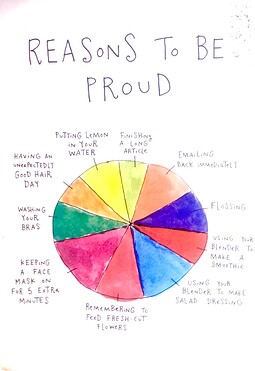 REASONS TO BE
PROUD
PUTTING LEMON
IN YOUR
WATER
FINISHING
A LONG
ARTICLE
EMAILING
BACK IMMEDIATELY
FLOSSING
USING YOUR
BLENDER TO
MAKE A
SMOOTHIE
USING YOUR
BLENDER TO MAKE
SALAD DRESSING
REMEMBERING TO
FEED FRESH-CUT
FLOWERS
KEEPING
A FACE
MASK ON
FOR 5 EXTRA
MINUTES
WASHING
YOUR
BRAS
HAVING AN
UNEXPECTEDLY
GOOD HAIR
DAY